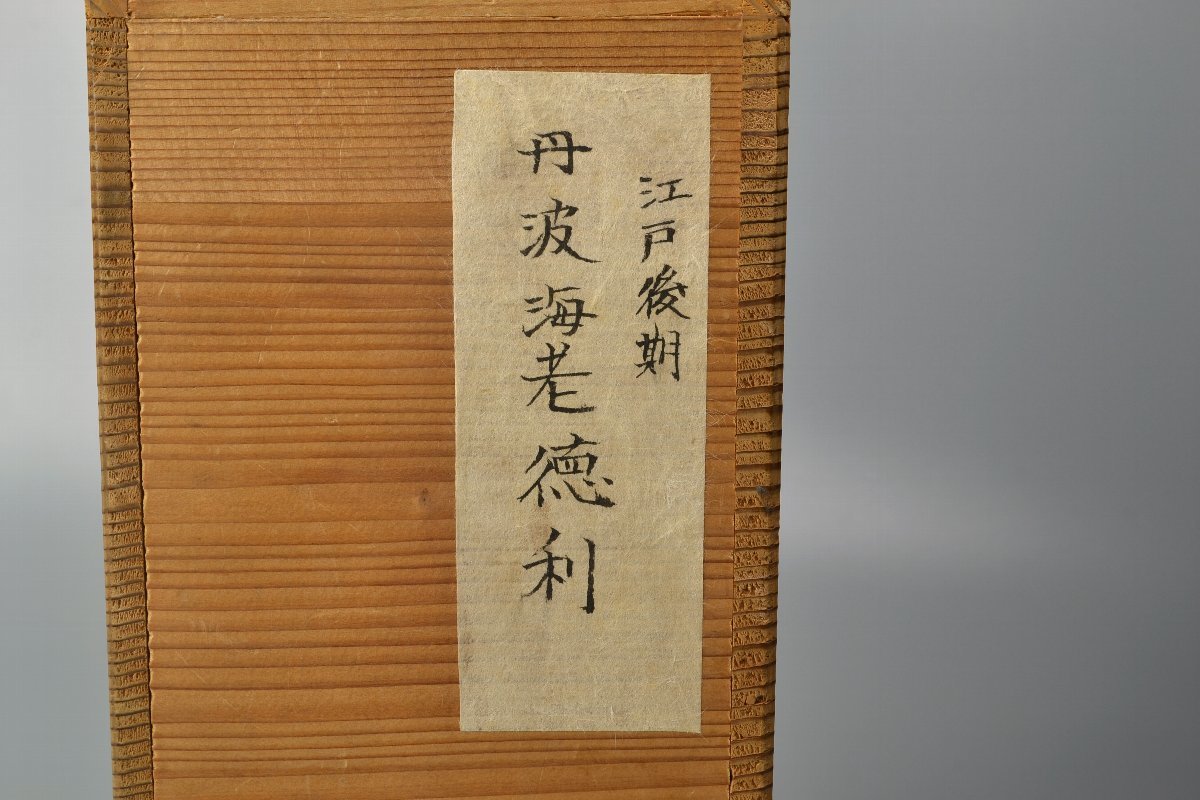 江戸後期
丹波海老徳利